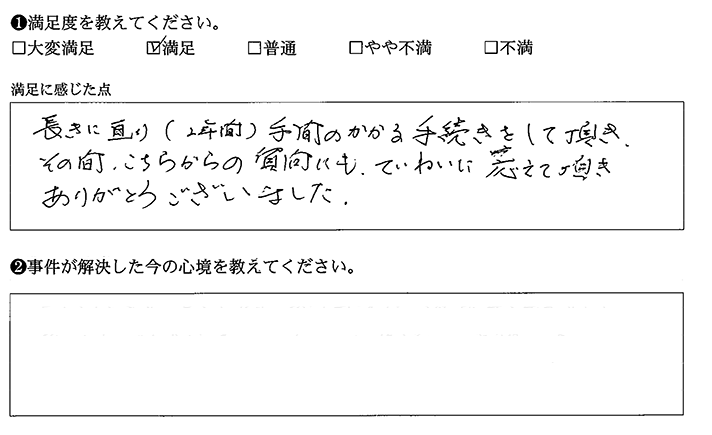 ❶満足度を教えてください。
□大変満足 ☑満足 □普通 □やや不満 □不満
満足に感じた点
長きに亘り(2年間)手間のかかる手続きをして頂き、
その間、こちらからの質問にも、ていねいに応えて頂き
ありがとうございました。
❷事件が解決した今の心境を教えてください。